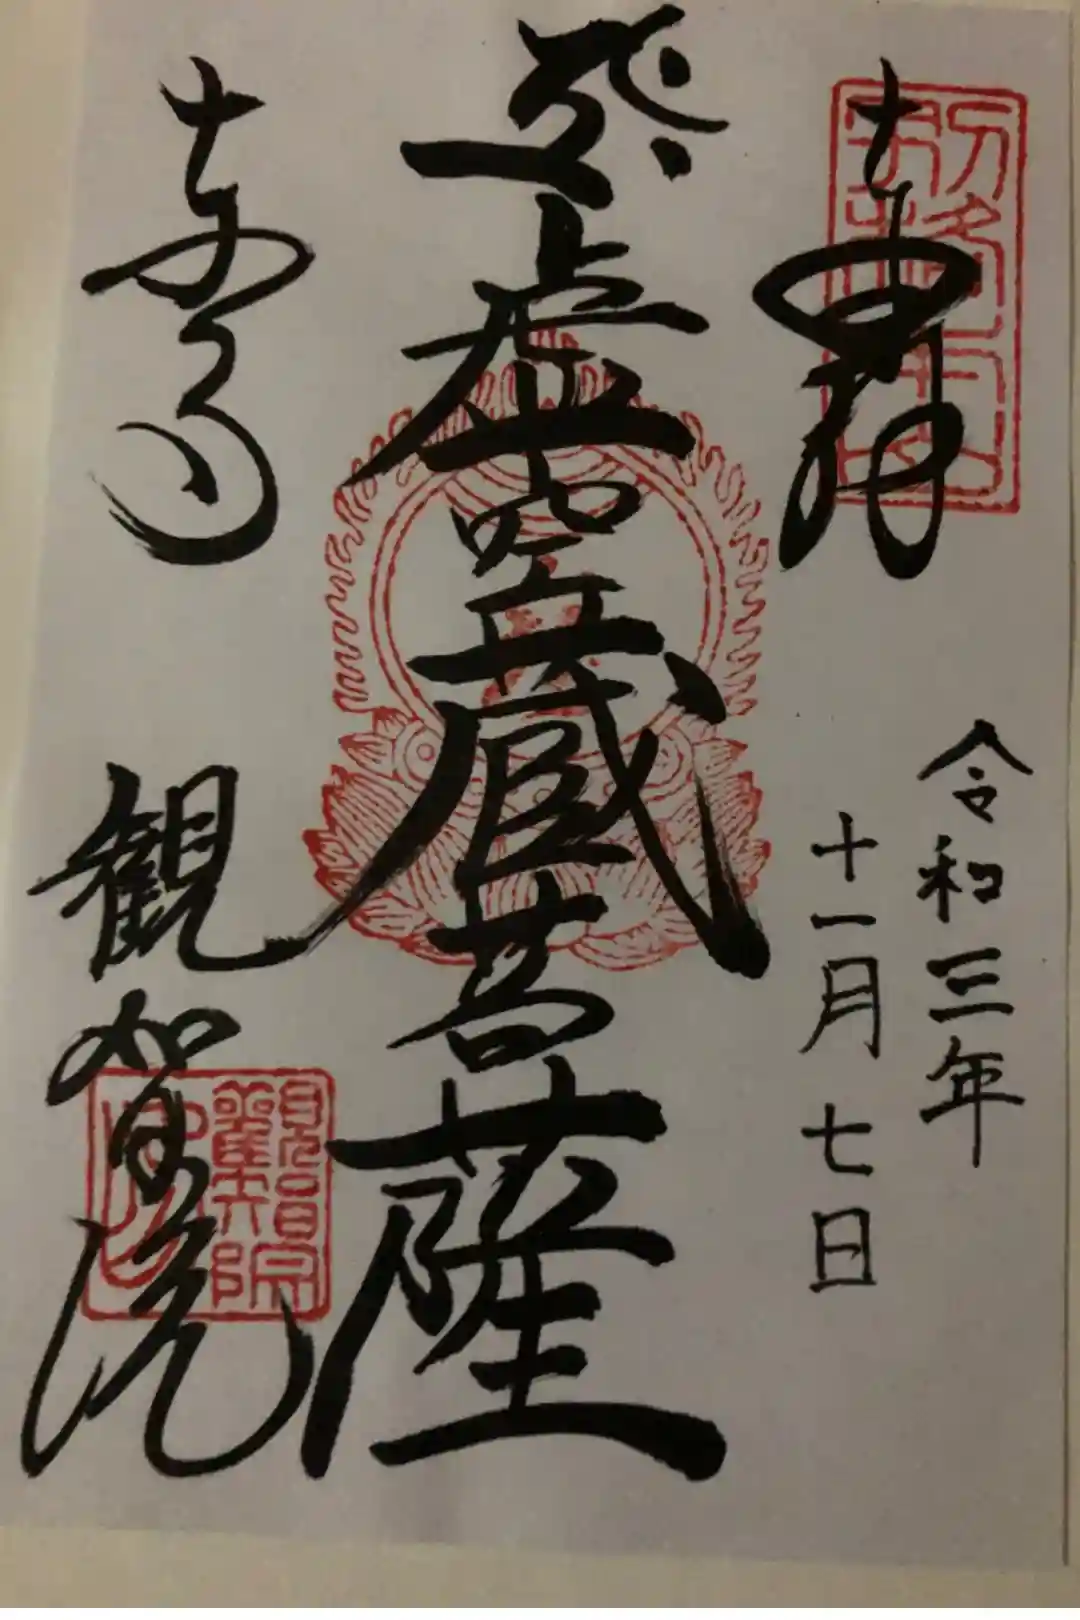 奉拝
令和三年
十一月七日
虚空蔵菩薩
東寺
観智院